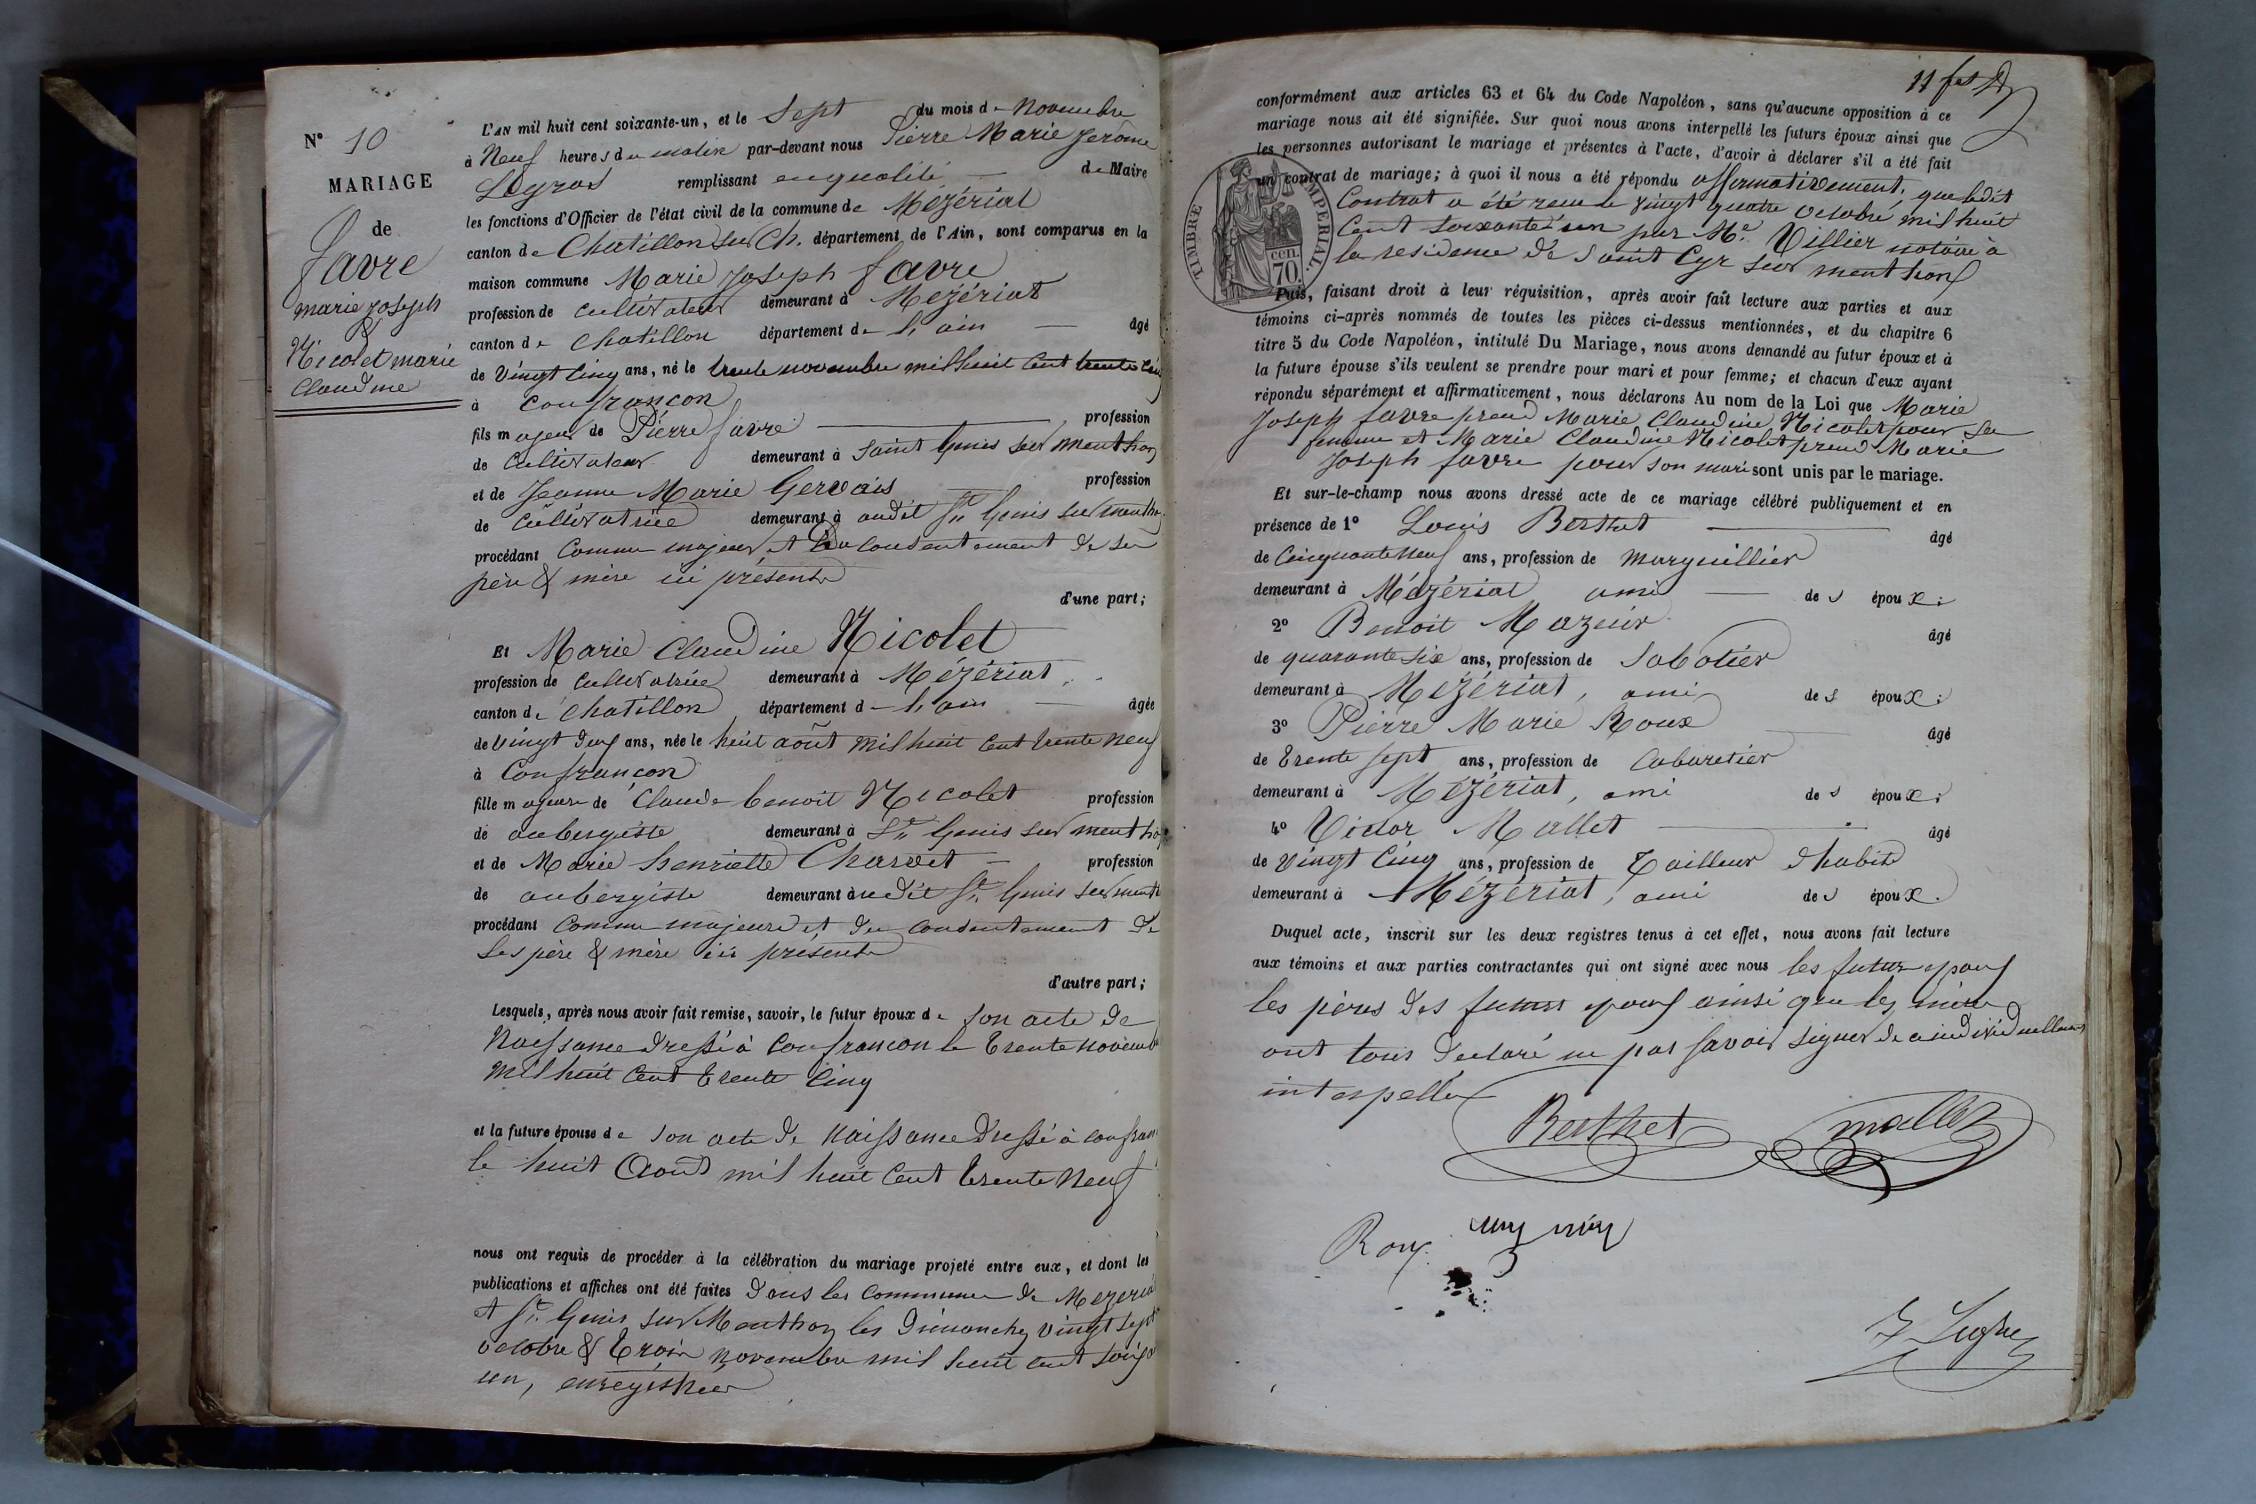 N° 10
MARIAGE
de
favre
marie Joseph
&
Nicolet marie
Claudine
L'AN mil huit cent soixante-un, et le Sept du mois de Novembre
à Neuf heures du matin par-devant nous Pierre Marie Jerôme
remplissant en qualité de Maire
les fonctions d'Officier de l'état civil de la commune de Mézériat
canton de Chatillon sur Ch. département de l'Ain, sont comparus en la
maison commune Marie Joseph favre
profession de cultivateur demeurant à Mezériat
canton de Chatillon département de l'ain âgé
de Vingt Cinq ans, né le trente novembre mil huit Cent trente Cinq
à Confrançon
fils majeur de Pierre favre profession
de Cultivateur demeurant à Saint Genis sur Menthon
et de Jeanne Marie Gervais profession
de Cultivatrice demeurant à audit St. Genis sur Menthon
procédant Comme majeur et du consentement de ses
père & mère ici présents
d'une part;
Et Marie Claudine Nicolet
profession de Cultivatrice demeurant à Mézériat
canton de Chatillon département de l'ain âgée
de Vingt deux ans, née le huit août mil huit cent trente neuf
à Confrançon
fille majeure de Claude benoit Nicolet profession
de aubergiste demeurant à St. Genis sur menthon
et de Marie henriette Charvet profession
de aubergiste demeurant à udit St. Genis sur menth
procédant Comme majeure et du consentement de
Ses père & mère ici présents
d'autre part;
Lesquels, après nous avoir fait remise, savoir, le futur époux de son acte de
Naissance dressé à Confrançon le trente novemb
mil huit Cent trente Cinq
et la future épouse de son acte de Naissance dressé à confran
le huit Août mil huit Cent trente Neuf
nous ont requis de procéder à la célébration du mariage projeté entre eux, et dont les
publications et affiches ont été faites dans les Communes de Mezeriat
et St. Genis sur Menthon les dimanches vingt sept
octobre & trois novembre mil huit cent soix
un,
11
conformément aux articles 63 et 64 du Code Napoléon, sans qu'aucune opposition à ce
mariage nous ait été signifiée. Sur quoi nous avons interpellé les futurs époux ainsi que
les personnes autorisant le mariage et présentes à l'acte, d'avoir à déclarer s'il a été fait
un contrat de mariage; à quoi il nous a été répondu affirmativement, que ledit
Contrat a été reçu le vingt quatre octobre mil huit
Cent soixante un par Me. Villier notaire à
la residence de Saint Cyr sur menthon
TIMBRE IMPERIAL.
70 cen.
Puis, faisant droit à leur réquisition, après avoir fait lecture aux parties et aux
témoins ci-après nommés de toutes les pièces ci-dessus mentionnées, et du chapitre 6
titre 5 du Code Napoléon, intitulé Du Mariage, nous avons demandé au futur époux et à
la future épouse s'ils veulent se prendre pour mari et pour femme; et chacun d'eux ayant
répondu séparément et affirmativement, nous déclarons Au nom de la Loi que Marie
Joseph favre prend Marie Claudine Nicolet pour sa
femme et Marie Claudine Nicolet prend Marie
Joseph favre pour son mari sont unis par le mariage.
Et sur-le-champ nous avons dressé acte de ce mariage célébré publiquement et en
présence de 1° Louis Berthet âgé
de Cinquante Neuf ans, profession de Marguillier
demeurant à Mézériat ami des époux;
2° Benoit Mazuir âgé
de quarante six ans, profession de Sabotier
demeurant à Mézériat, ami des époux;
3° Pierre Marie Roux âgé
de trente sept ans, profession de Cabaretier
demeurant à Mézériat, ami des époux;
4° Victor Mallet âgé
de vingt cinq ans, profession de Tailleur d'habits
demeurant à Mézériat, ami des époux.
Duquel acte, inscrit sur les deux registres tenus à cet effet, nous avons fait lecture
aux témoins et aux parties contractantes qui ont signé avec nous les futurs epoux
les pères des futurs epoux ainsi que les mères
ont tous declaré ne pas savoir signer de ce individuellement
interpellés
Berthet
Mallet
Roux